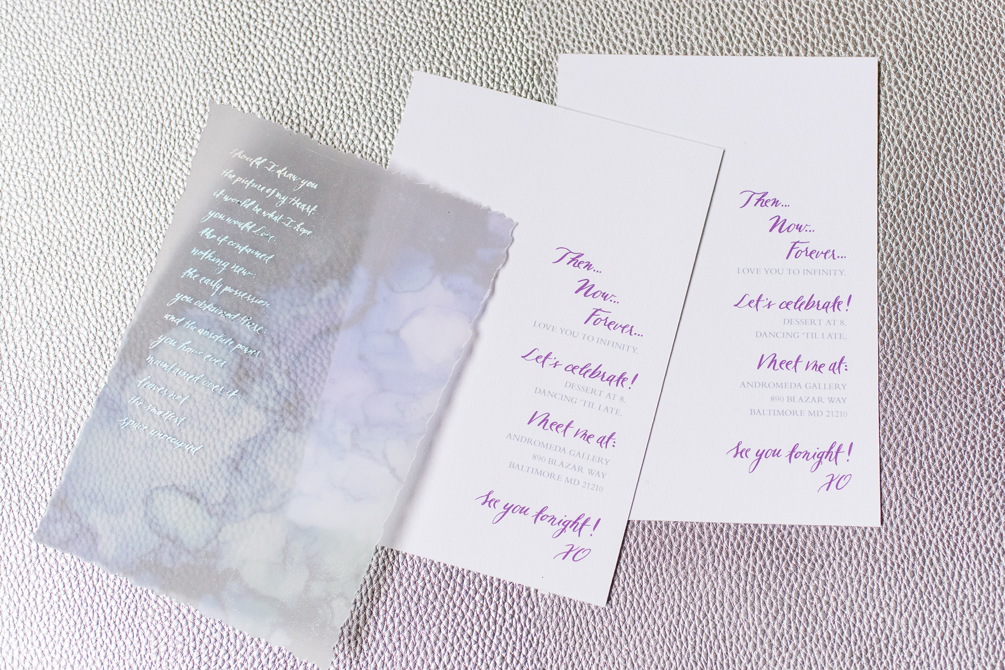 should I draw you
the picture of my heart
it would be what I hope
you would love
tho it contained
nothing new.
the early possession
you obtained there,
and the absolute power
you have ever
maintained over it
leaves not
the smallest
space unoccupied
Then...
Now...
Forever...
LOVE YOU TO INFINITY.
Let's celebrate!
DESSERT AT 8.
DANCING 'TIL LATE.
Meet me at:
ANDROMEDA GALLERY
890 BLAZAR WAY
BALTIMORE MD 21210
See you tonight!
XO
Then...
Now...
Forever...
LOVE YOU TO INFINITY.
Let's celebrate!
DESSERT AT 8.
DANCING 'TIL LATE.
Meet me at:
ANDROMEDA GALLERY
890 BLAZAR WAY
BALTIMORE MD 21210
See you tonight!
XO